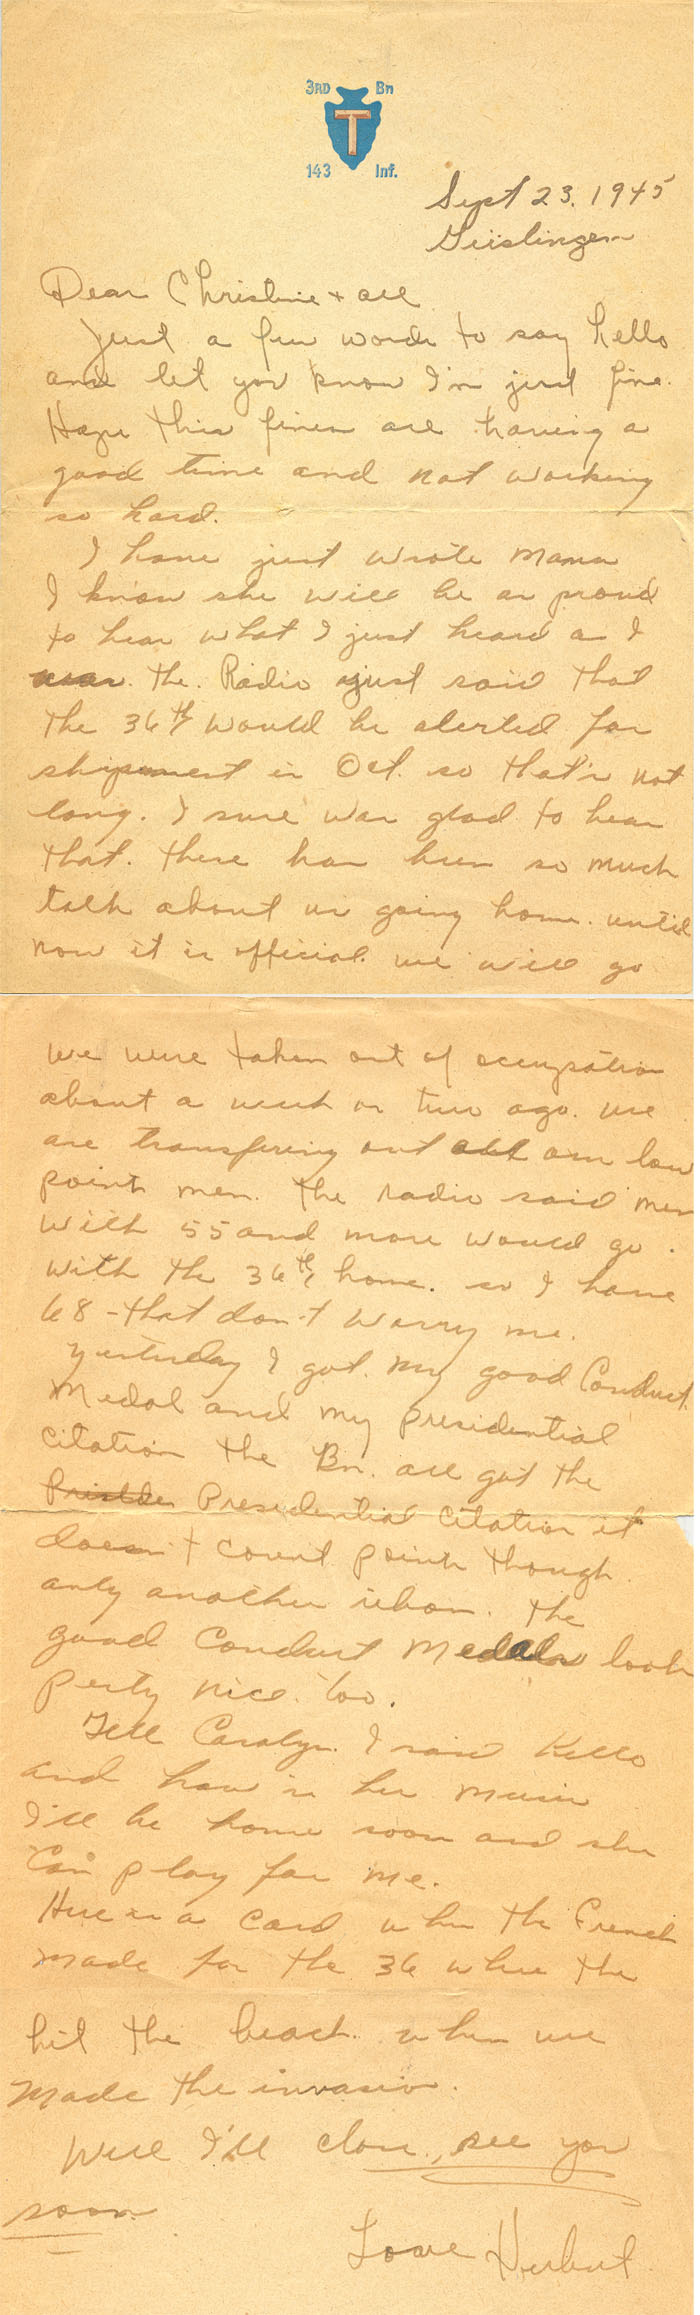 3RD Bn
T
143 Inf.
Sept 23. 1945
Geislingen
Dear Christine + all
Just a few words to say hello
and let you know I'm just fine.
Hope this finds all having a
good time and not working
so hard.
I have just wrote Mama
I know she will be as proud
to hear what I just heard as I
was. the. Radio just said that
the 36th would be alerted for
shipment in Oct. so that's not
long. I sure was glad to hear
that. there has been so much
talk about us going home. until
now it is official. we will go
we were taken out of occupation
about a week or two ago. we
are transfering out all our low
point men. the radio said men
with 55 and more would go.
with the 36th home. so I have
68 - that don't worry me.
yesterday I got my good Conduct
Medal and my presidential
citation the Bn. all got the
Presidential citation it
doesn't count points though
only another ribon. the
good Conduct Medals look
perty nice. too.
Tell Carolyn. I said Hello
and how is her music
I'll be home soon and she
can play for me.
Here is a card when the French
made for the 36 where the
hit the beach. when we
made the invasion.
Well I'll close, see you
soon
Love Herbert